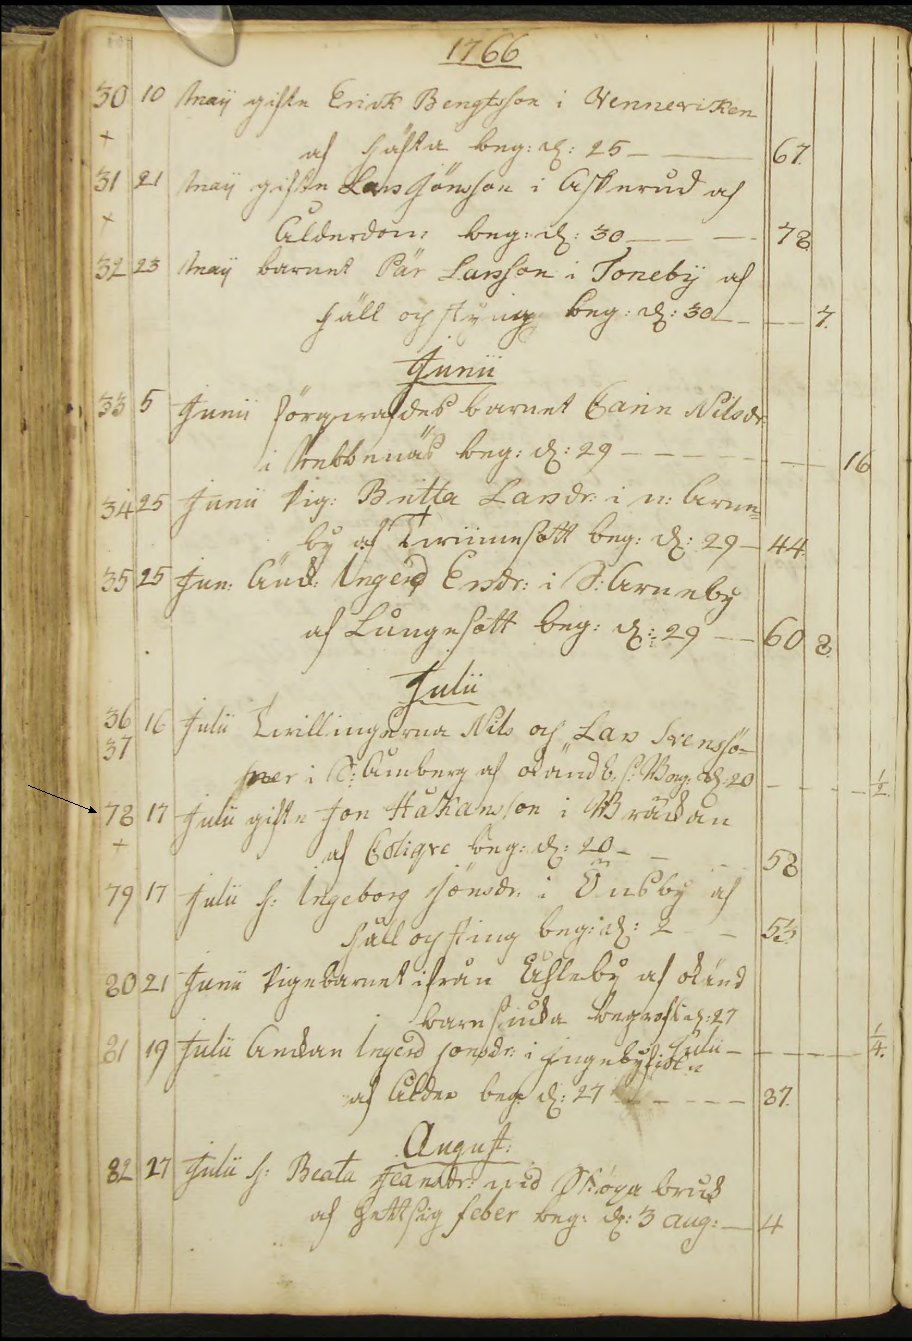 1766
30 10 Maij gifte Erick Bengtsson i Vennerviken
+ af hästa beg: d: 25 — 67.
31 21 Maij gifte Lars Jönsson i Askerud af
+ Ålderdom: beg: d: 30 — 78
32 23 Maij barnet Pär Larsson i Toneby af
håll och styng beg: d: 30 — 7.
Junii
33 5 Junii barnet Carin Nilsdr
i beg: d: 29 — 16
34 25 Junii pig: Britta Larsdr: i n: Arne=
by af beg: d: 29 — 44.
35 25 Jun: Änk: Ingerd Ersdr: i S: Arneby
af Lungesott beg: d: 29 — 60 8.
Julii
36 16 Julii Tvillingarna Nils och Lars Svenssö-
37 ner i S: Amberg af okänd b. s: Beg. d: 20 — ½
78 17 Julii gifte Jon Håkansson i
+ af Colique beg: d: 20 — 58
79 17 Julii h: Ingeborg Jönsdr: i Önsby af
håll och sting beg: d: 2 — 53.
80 21 Junii pigebarnet ifrån Uhleby af okänd
barnsiuka begrofs d: 27
Julii — ¼.
81 19 Julii Änkan Ingerd Jonsdr: i
af Ålder beg: d: 27 — 87.
August:
82 27 Julii h: Beata Jeansdr: wid Stöga bruk
af hettsig feber beg: d: 3 aug: — 4